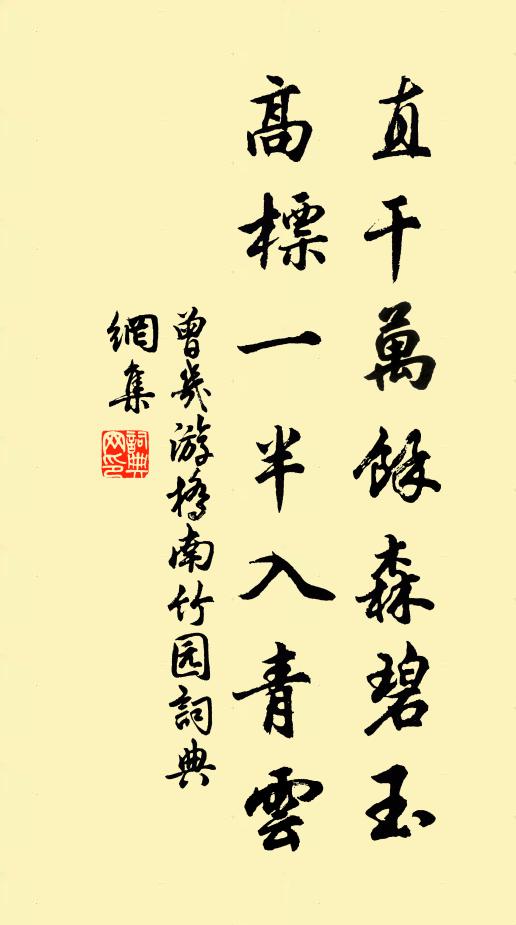 直干萬餘森碧玉
高標一半入青雲
曾幾游橋南竹园詞典
網集
詞典網印